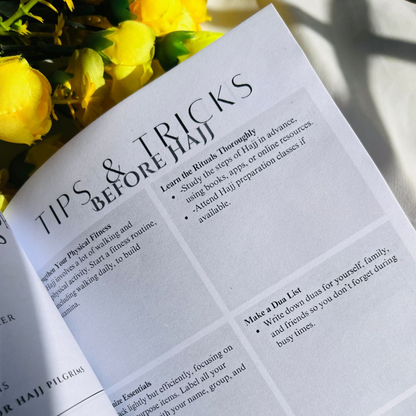 TIPS & TRICKS
BEFORE HAJJ
Learn the Rituals Thoroughly
-Study the steps of Hajj in advance,
using books, apps, or online resources.
-Attend Hajj preparation classes if
available.
Your Physical Fitness
Hajj involves a lot of walking and
physical activity. Start a fitness routine,
including walking daily, to build
Make a Dua List
Write down duas for yourself, family,
and friends so you don't forget during
busy times.
Essentials
lightly but efficiently, focusing on
items. Label all your
with your name, group, and
HAJJ PILGRIMS